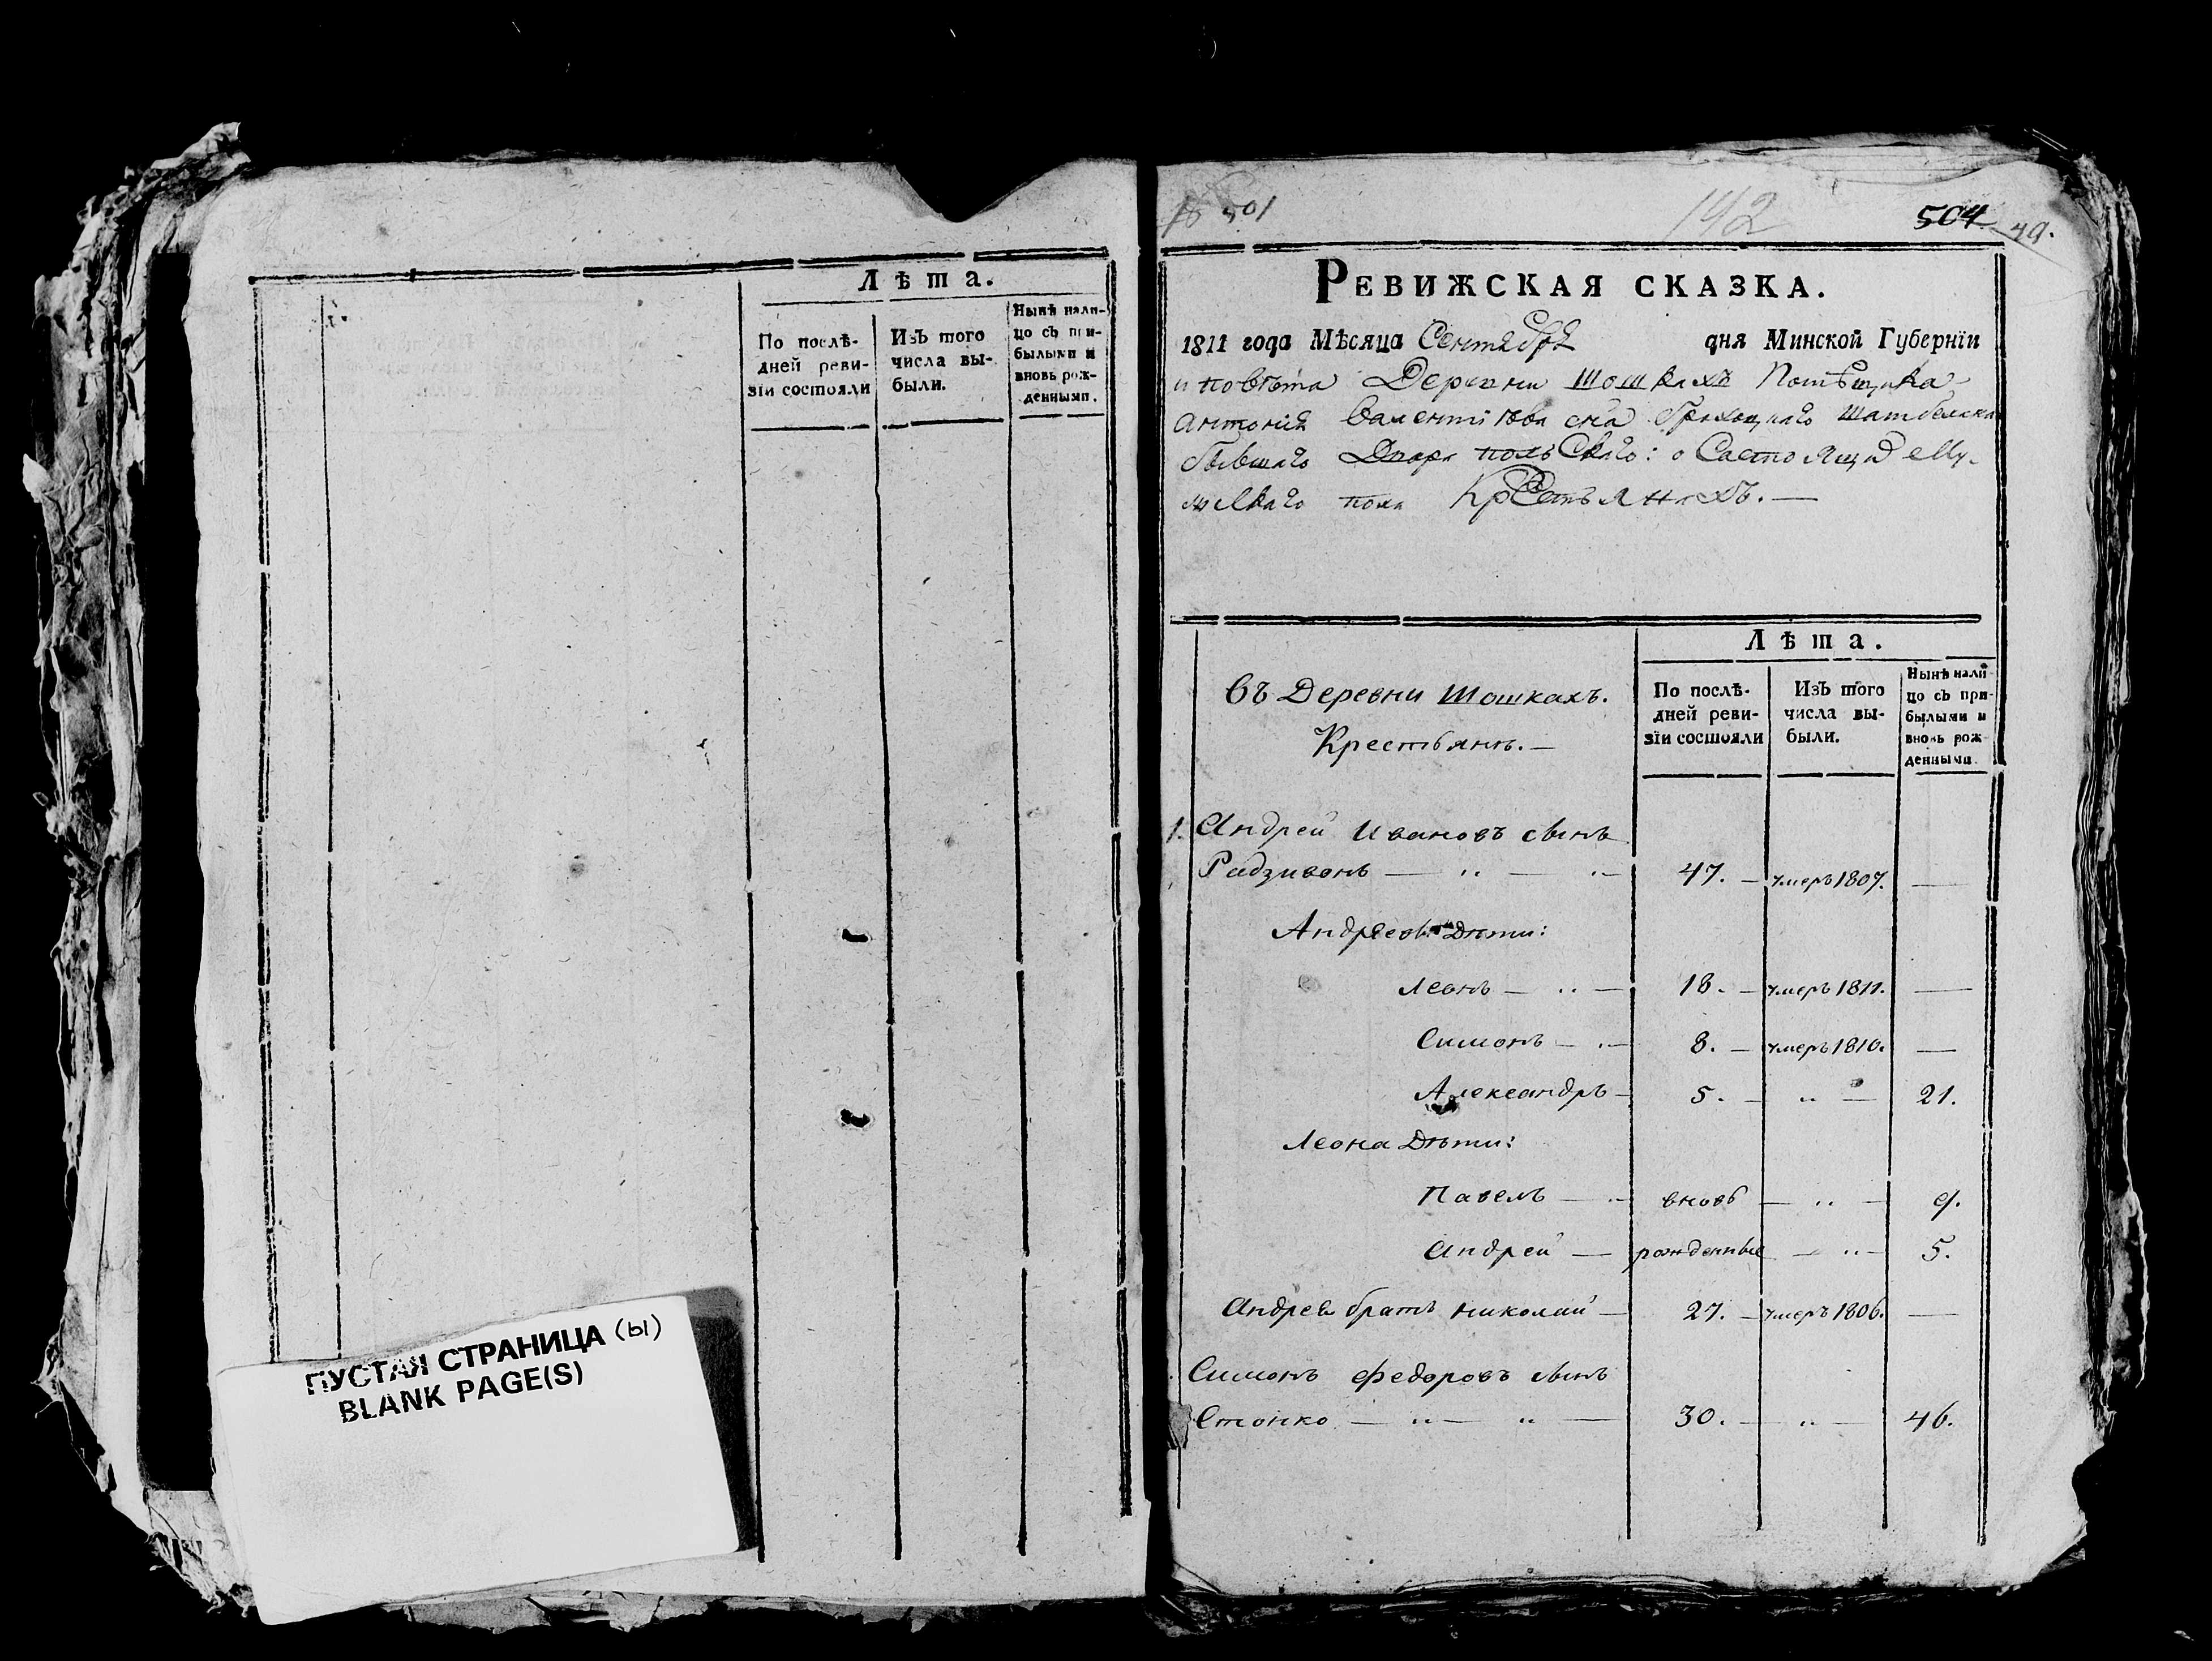 Лѣта.
По послѣ-
дней реви-
зїи состояли
Изъ того
числа вы-
были.
Нынѣ нали-
цо съ при-
былыми и
вновь рож-
денными.
ПУСТАЯ СТРАНИЦА (ы)
BLANK PAGE(S)
501
142
504
49.
Ревижская сказка.
1811 года Мѣсяца Сентября дня Минской Губернїи
и повѣта Деревни Шошкахъ Помѣщика
Антонія Валентіева сна Шамбеляна
бывшаго Двора польскаго: о Состоящид Му-
жескаго пола Крестьянахъ. —
Лѣта.
Въ Деревни Шошкахъ.
Крестьянъ. —
По послѣ-
дней реви-
зїи состояли
Изъ того
числа вы-
были.
Нынѣ нали-
цо съ при-
былыми и
вновь рож-
денными.
1. Андрей Ивановъ сынъ
Радзивонъ — „ — „ 47. — умеръ 1807. —
Андреевы Дѣти:
Леонъ — „ — 18. — умеръ 1811. —
Симонъ — „ — 8. — умеръ 1810. —
Александръ — 5. — „ — 21.
Леона Дѣти:
Павелъ — „ вновь — „ — 9.
Андрей — рожденные — „ — 5.
Андрея братъ Николай — 27. — умеръ 1806. —
Симонъ Федоровъ сынъ
Стонко — „ — „ — 30. — „ — 46.